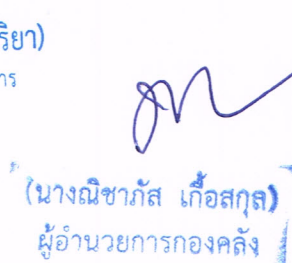 ริยา)
าร
(นางณิชาภัส เกื้อสกุล)
ผู้อำนวยการกองคลัง